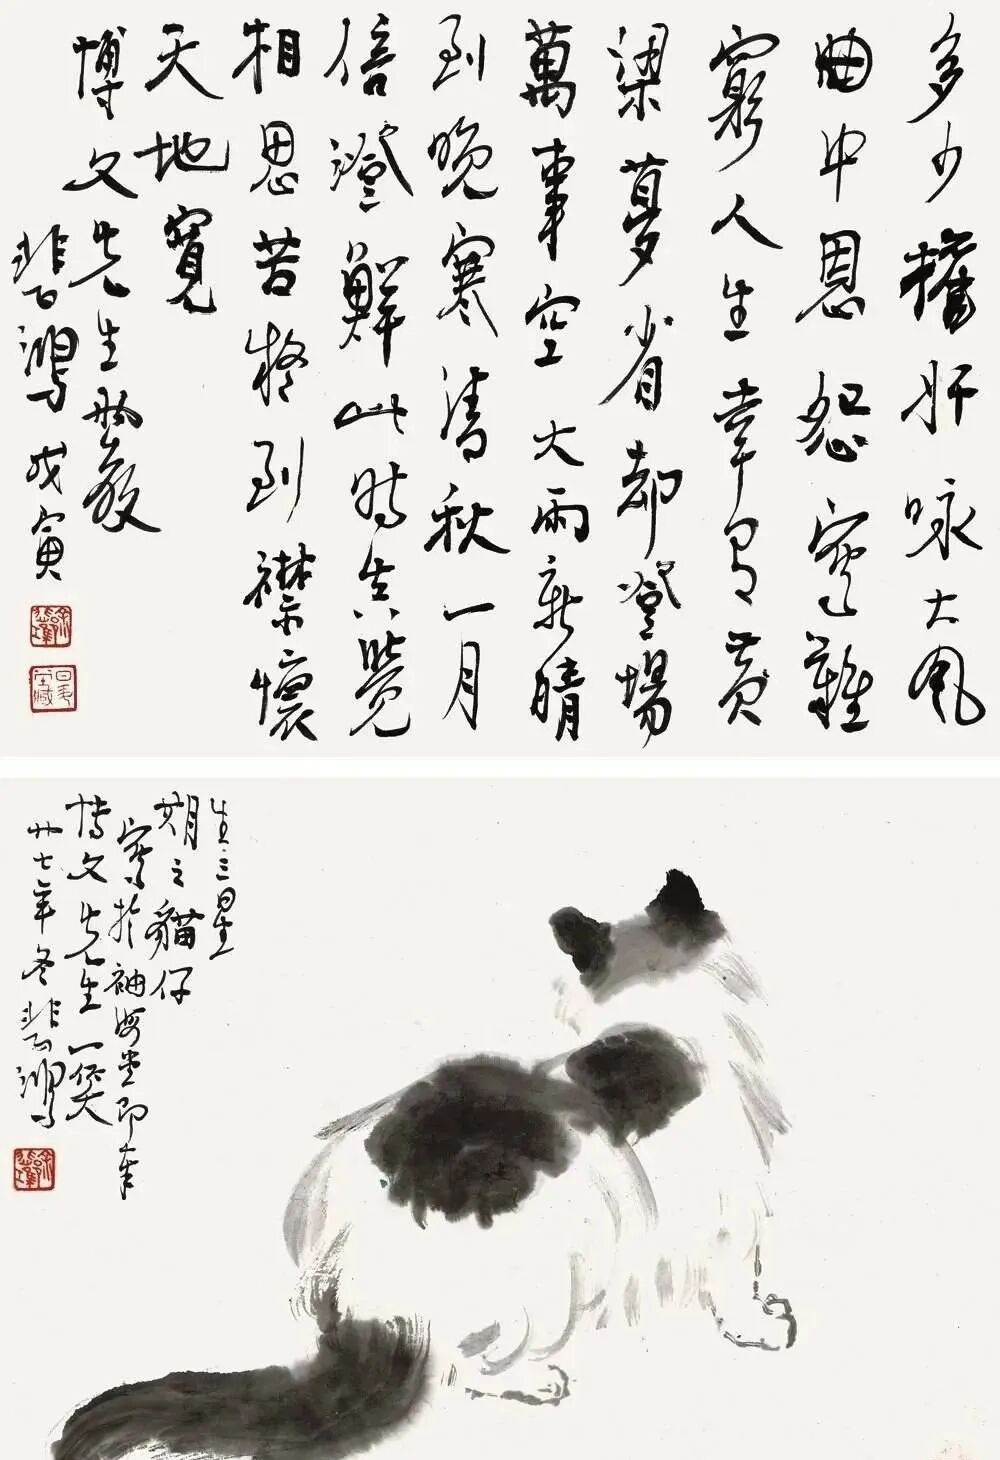 多少摧肝咏大風
曲中恩怨寔難
窮人生幸有黄
梁夢省却登場
萬事空大雨新晴
到晚寒清秋一月
倍澄鮮此時真覺
相思苦到襟懷
天地寬
博文先生教
悲鴻戊寅
生三星
期之貓仔
寫於袖海堂即奉
博文先生一笑
廿七年冬悲鴻